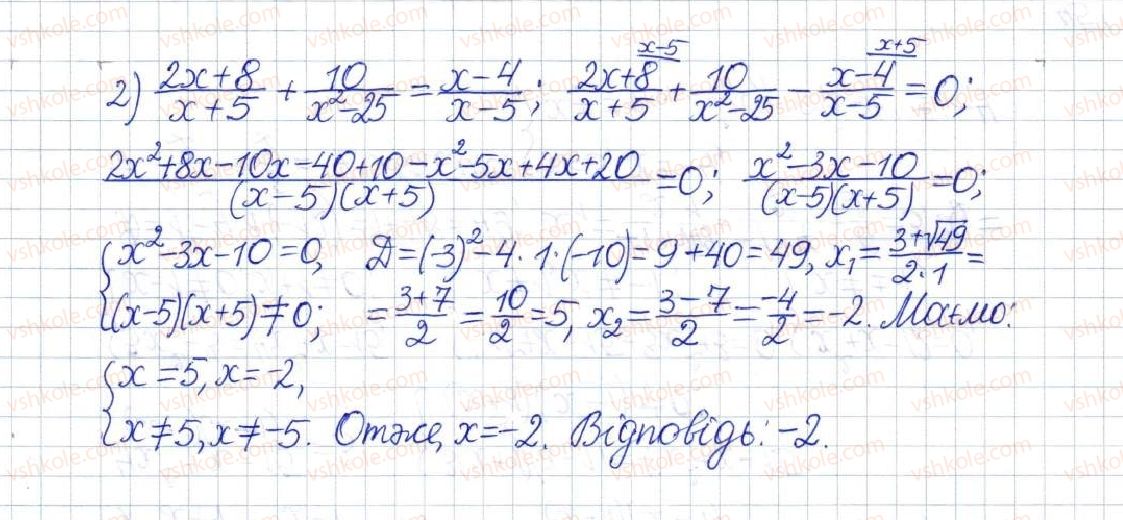 2) (2x+8)/(x+5) + 10/(x²-25) = (x-4)/(x-5); (2x+8)/(x+5) ^(x-5) + 10/(x²-25) - (x-4)/(x-5) ^(x+5) = 0;
(2x²+8x-10x-40+10-x²-5x+4x+20)/((x-5)(x+5)) = 0; (x²-3x-10)/((x-5)(x+5)) = 0;
{ x²-3x-10=0, Д=(-3)²-4·1·(-10)=9+40=49, x₁=(3+√49)/(2·1)=
(x-5)(x+5)≠0; =(3+7)/2=10/2=5, x₂=(3-7)/2=-4/2=-2. Маємо:
{ x=5, x=-2,
x≠5, x≠-5. Отже, x=-2. Відповідь: -2.